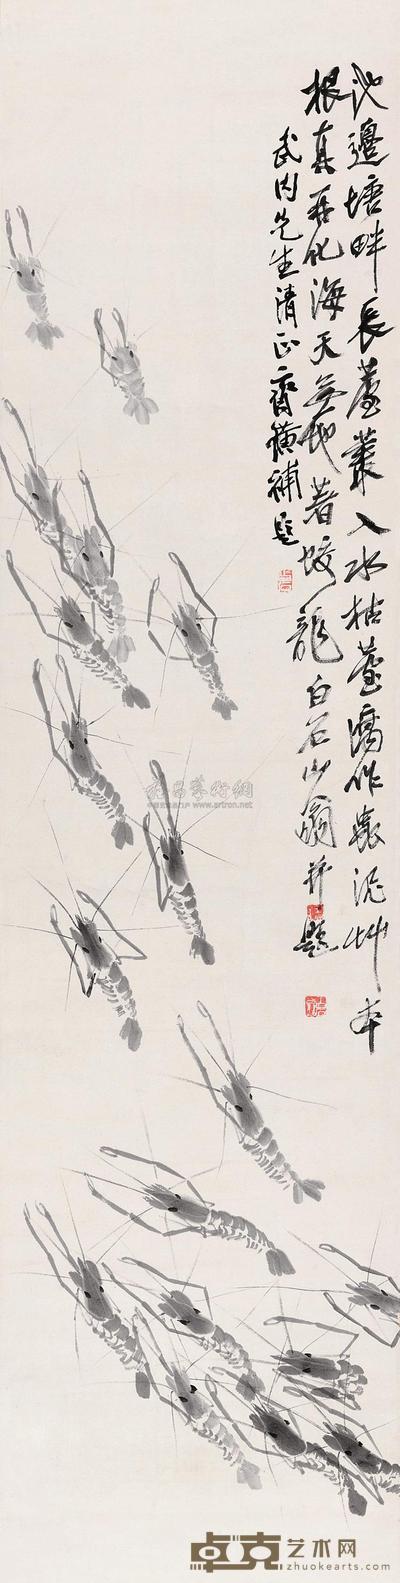 池邊塘畔長蘆叢入水枯蘆腐作泥艸本
根真再化海天無地著蛟龍白石山翁并題
武内先生清正齊璜補題
www.artron.net
卓克艺术网
zhuokearts.com